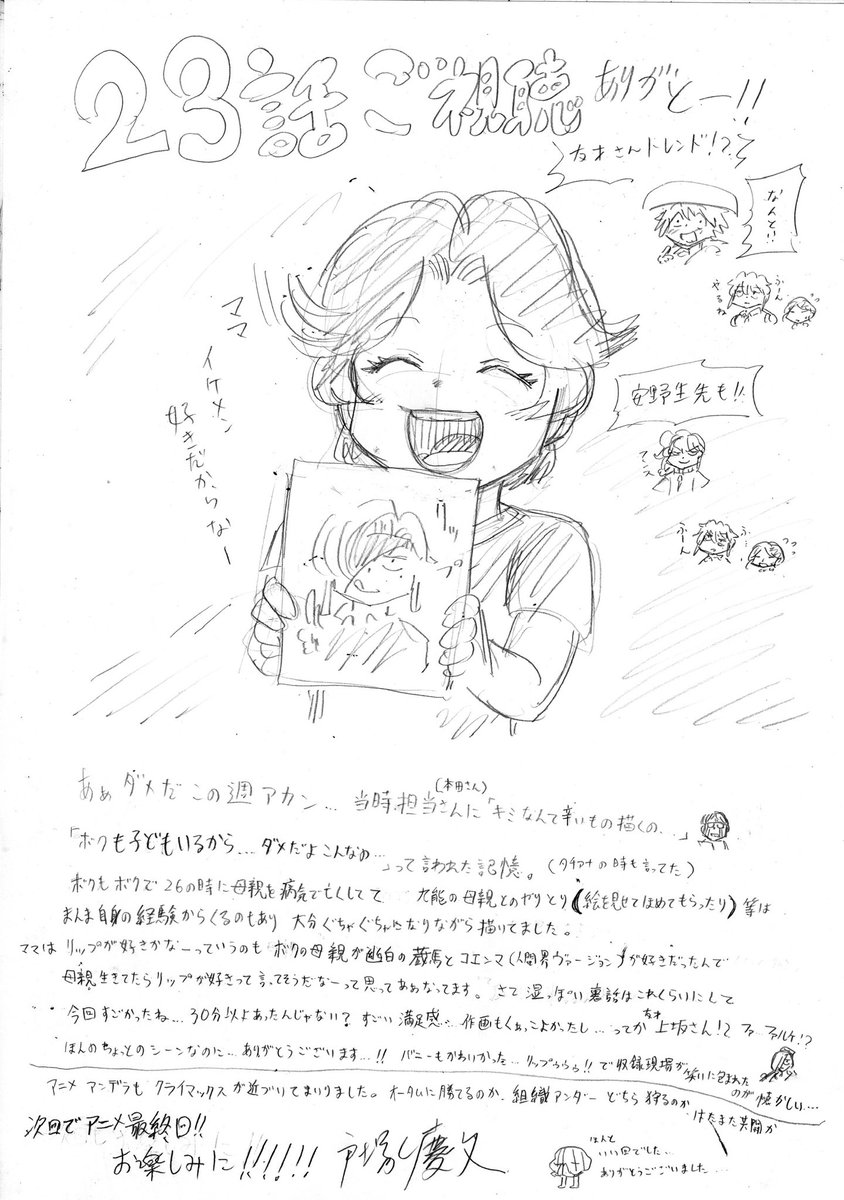 23話ご視聴ありがとー!!
友才さんトレンド!?
なんと!!
ふーん
やるね
安野先生も!!
ママ
イケメン
好きだからなー
テンス
ふーん
リップ
あぁダメだこの週アカン… 当時担当さんに「キミなんて辛いもの描くの…」
(本田さん)
「ボクも子どもいるから… ダメだよこんなの…」って言われた記憶。(タチアナの時も言ってた)
ボクもボクで26の時に母親を病気で亡くしてて 九能の母親とのやりとり(絵を見せてほめてもらったり)等は
まんま自身の経験からくるのもあり 大分ぐちゃぐちゃになりながら描いてました。
ママはリップが好きかなーっていうのも ボクの母親が幽白の蔵馬とコエンマ(人間界ヴァージョン)が好きだったんで
母親生きてたらリップが好きって言ってそうだなーって思ってああなってます。さて湿っぽい裏話はこれくらいにして
今回すごかったね… 30分以上あったんじゃない? すごい満足感… 作画もくぁっこよかったし… ってか上坂さん!? ファ ファルケ!?
ほんのちょっとのシーンなのに… ありがとうございます…!! バニーもかわいかった… リップぅぅぅ!!で収録現場が笑いに包まれたのが懐かしい…
アニメ アンデラも クライマックスが近づいてまいりました。オータムに勝てるのか 組織アンダー どちら狩るのか はたまた共闘か
次回でアニメ最終回!!
お楽しみに!!!!!! 戸塚慶文
ほんと
いい回でした…
ありがとうございました…